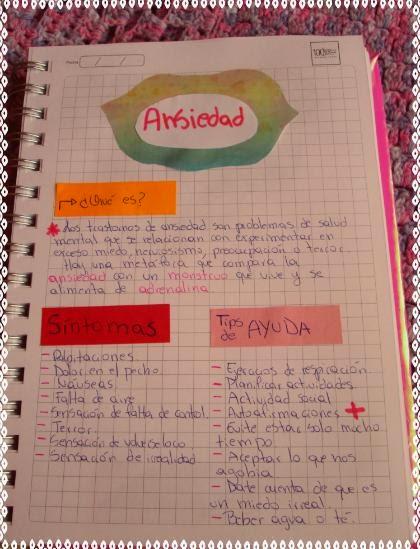 Fecha
Ansiedad
¿Qué es?
* Los trastornos de ansiedad son problemas de salud
mental que se relacionan con experimentar en
exceso miedo, nerviosismo, preocupación o terror.
Hay una metáfora que compara la
ansiedad con un monstruo que vive y se
alimenta de adrenalina
Síntomas
- Palpitaciones
- Dolor en el pecho
- Náuseas
- Falta de aire
- Sensación de falta de control.
- Terror.
- Sensación de volverse loco
- Sensación de irrealidad
Tips
de AYUDA
- Ejercicios de respiración.
- Planificar actividades
- Actividad social
- Autoafirmaciones +
- Evite estar solo mucho
tiempo
- Aceptar lo que nos
agobia
- Date cuenta de que es
un miedo irreal.
- Beber agua o té.